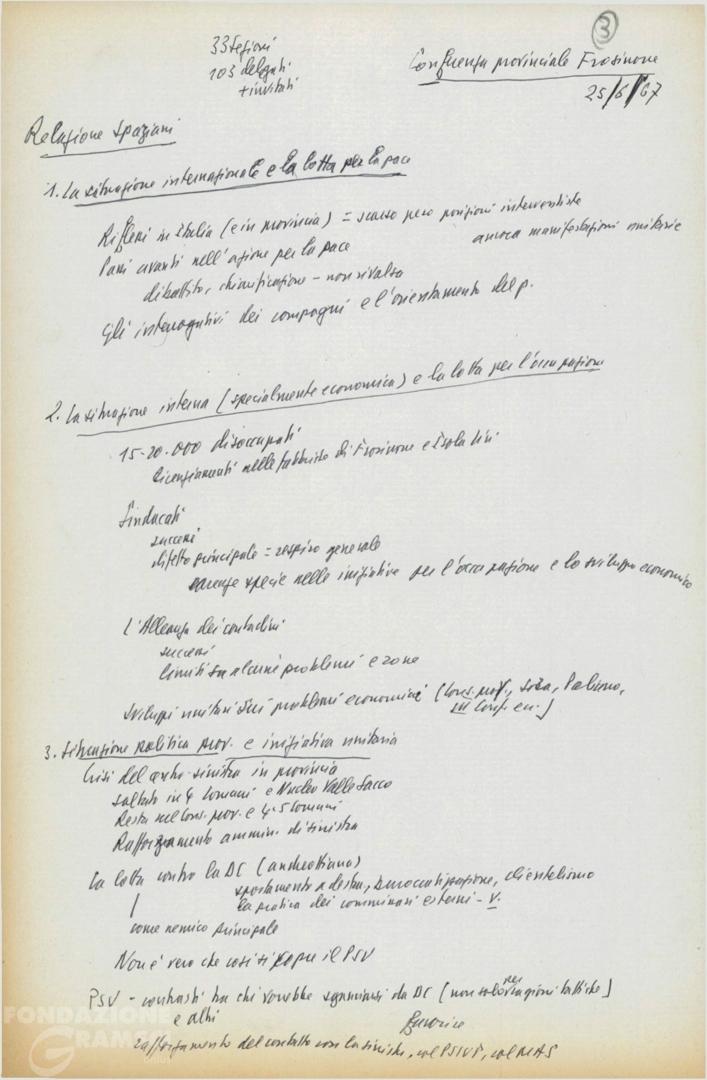 3
33 sezioni
103 delegati
+ invitati
Conferenza provinciale Frosinone
25/6/67
Relazione Spaziani
1. La situazione internazionale e la lotta per la pace
Riflessi in Italia (e in provincia) = scarso peso posizioni interventiste
ancora manifestazioni unitarie
Passi avanti nell'azione per la pace
dibattito, chiarificazione - non rivalsa
Gli interrogativi dei compagni e l'orientamento del p.
2. La situazione interna (specialmente economica) e la lotta per l'occupazione
15-20.000 disoccupati
licenziamenti nelle fabbriche di Frosinone e Isola Liri
Sindacati
successi
difetto principale = respiro generale
carenze specie nelle iniziative per l'occupazione e lo sviluppo economico
L'Alleanza dei contadini
successi
limiti su alcuni problemi e zone
Sviluppi unitari sui problemi economici (Cons. prov., Sora, Paliano,
III Conf. ec.)
3. Situazione politica prov. e iniziativa unitaria
Crisi del centro-sinistra in provincia
saltato in 4 Comuni e Nucleo Valle Sacco
Resta nel Cons. prov. e 4-5 Comuni
Rafforzamento ammin. di sinistra
La lotta contro la DC (andreottiana)
spostamento a destra, burocratizzazione, clientelismo
la pratica dei commissari esterni - V.
come nemico principale
Non è vero che così si copre il PSU
PSU - contrasti tra chi vorrebbe sganciarsi da DC (non solo per ragioni tattiche)
e altri
rafforzamento del contatto con la sinistra, col PSIUP, col MAS
FONDAZIONE
GRAMSCI